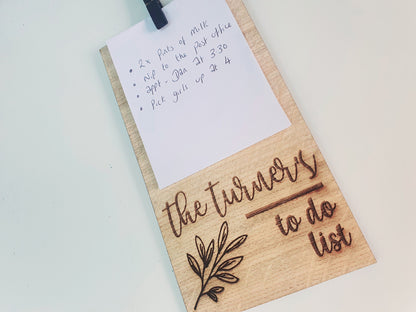 • 2x pints of milk
• Nip to the post office
• Appt - Dan at 3:30
• Pick girls up at 4
the turner's
to do
list